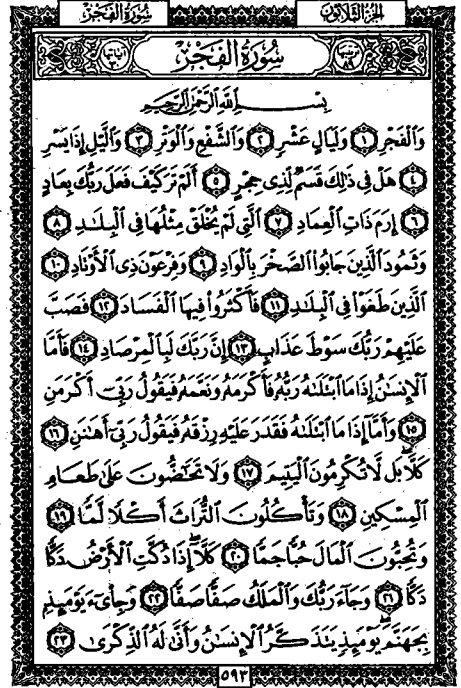 سُورَةُ الفَجْرِ الجزءُ الثلاثون
سُورَةُ الفَجْرِ
بِسْمِ اللَّهِ الرَّحْمَٰنِ الرَّحِيمِ
وَالْفَجْرِ ١ وَلَيَالٍ عَشْرٍ ٢ وَالشَّفْعِ وَالْوَتْرِ ٣ وَالَّيْلِ إِذَا يَسْرِ
٤ هَلْ فِي ذَٰلِكَ قَسَمٌ لِّذِي حِجْرٍ ٥ أَلَمْ تَرَ كَيْفَ فَعَلَ رَبُّكَ بِعَادٍ
٦ إِرَمَ ذَاتِ الْعِمَادِ ٧ الَّتِي لَمْ يُخْلَقْ مِثْلُهَا فِي الْبِلَٰدِ ٨
وَثَمُودَ الَّذِينَ جَابُوا الصَّخْرَ بِالْوَادِ ٩ وَفِرْعَوْنَ ذِي الْأَوْتَادِ ١٠
الَّذِينَ طَغَوْا فِي الْبِلَٰدِ ١١ فَأَكْثَرُوا فِيهَا الْفَسَادَ ١٢ فَصَبَّ
عَلَيْهِمْ رَبُّكَ سَوْطَ عَذَابٍ ١٣ إِنَّ رَبَّكَ لَبِالْمِرْصَادِ ١٤ فَأَمَّا
الْإِنسَٰنُ إِذَا مَا ابْتَلَىٰهُ رَبُّهُ فَأَكْرَمَهُ وَنَعَّمَهُ فَيَقُولُ رَبِّي أَكْرَمَنِ
١٥ وَأَمَّا إِذَا مَا ابْتَلَىٰهُ فَقَدَرَ عَلَيْهِ رِزْقَهُ فَيَقُولُ رَبِّي أَهَٰنَنِ ١٦
كَلَّا بَل لَّا تُكْرِمُونَ الْيَتِيمَ ١٧ وَلَا تَحَٰضُّونَ عَلَىٰ طَعَامِ
الْمِسْكِينِ ١٨ وَتَأْكُلُونَ التُّرَاثَ أَكْلًا لَّمًّا ١٩
وَتُحِبُّونَ الْمَالَ حُبًّا جَمًّا ٢٠ كَلَّا إِذَا دُكَّتِ الْأَرْضُ دَكًّا
دَكًّا ٢١ وَجَاءَ رَبُّكَ وَالْمَلَكُ صَفًّا صَفًّا ٢٢ وَجِايءَ يَوْمَئِذٍ
بِجَهَنَّمَ يَوْمَئِذٍ يَتَذَكَّرُ الْإِنسَٰنُ وَأَنَّىٰ لَهُ الذِّكْرَىٰ ٢٣
٥٩٣